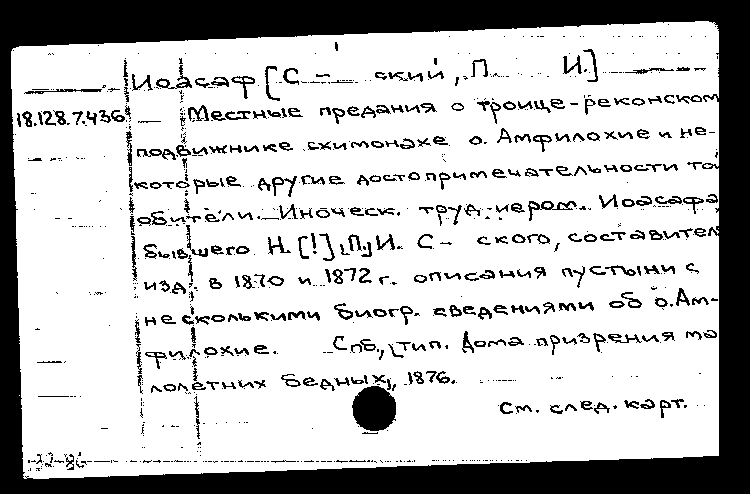 Иоасаф [С – ский, П. И.]
18.128.7.436 — Местные предания о троице-реконском
подвижнике схимонахе о. Амфилохие и не-
которые другие достопримечательности той
обители. Иноческ. труд иером. Иоасафа
бывшего Н. [!] [П.] И. С – ского, составител
изд. в 1870 и 1872 г. описания пустыни с
несколькими биогр. сведениями об о. Ам-
филохие. Спб., [тип. Дома призрения ма
лолетних бедных], 1876.
См. след. карт.
32-86